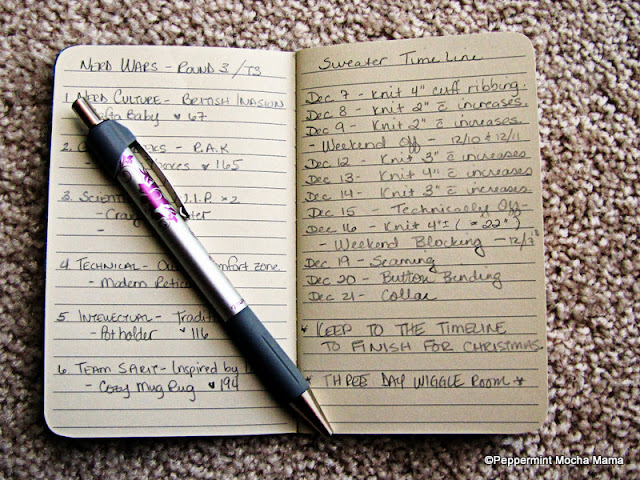 NERD WARS - ROUND 3/T3
1. NERD CULTURE - BRITISH INVASION
Baby ♥ 67
2. - R.A.K
♥ 165
3. W.I.P. x2
-
-
4. TECHNICAL - comfort zone
- Modern
5. INTELECTUAL -
- Potholder ♥ 116
6. TEAM SPIRIT - Inspired by
- Cozy Mug Rug ♥ 194
Sweater Time Line
Dec. 7 - Knit 4" cuff ribbing.
Dec. 8 - Knit 2" c̄ increases.
Dec. 9 - Knit 2" c̄ increases.
- Weekend Off - 12/10 & 12/11
Dec. 12 - Knit 3" c̄ increases
Dec. 13 - Knit 4" c̄ increases
Dec. 14 - Knit 3" c̄ increases
Dec. 15 - Technically Off -
Dec. 16 - Knit 4" ± (≈ 22")
- Weekend Blocking - 12/17
Dec. 19 - Seaming
Dec. 20 - Button Banding
Dec. 21 - Collar
* KEEP TO THE TIMELINE
TO FINISH FOR CHRISTMAS.
* THREE DAY WIGGLE ROOM *
©Peppermint Mocha Mama